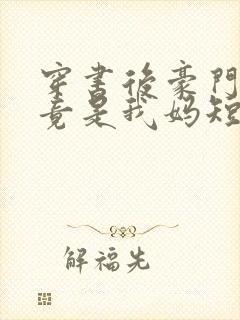 穿書後豪門
竟是我媽短
解福先